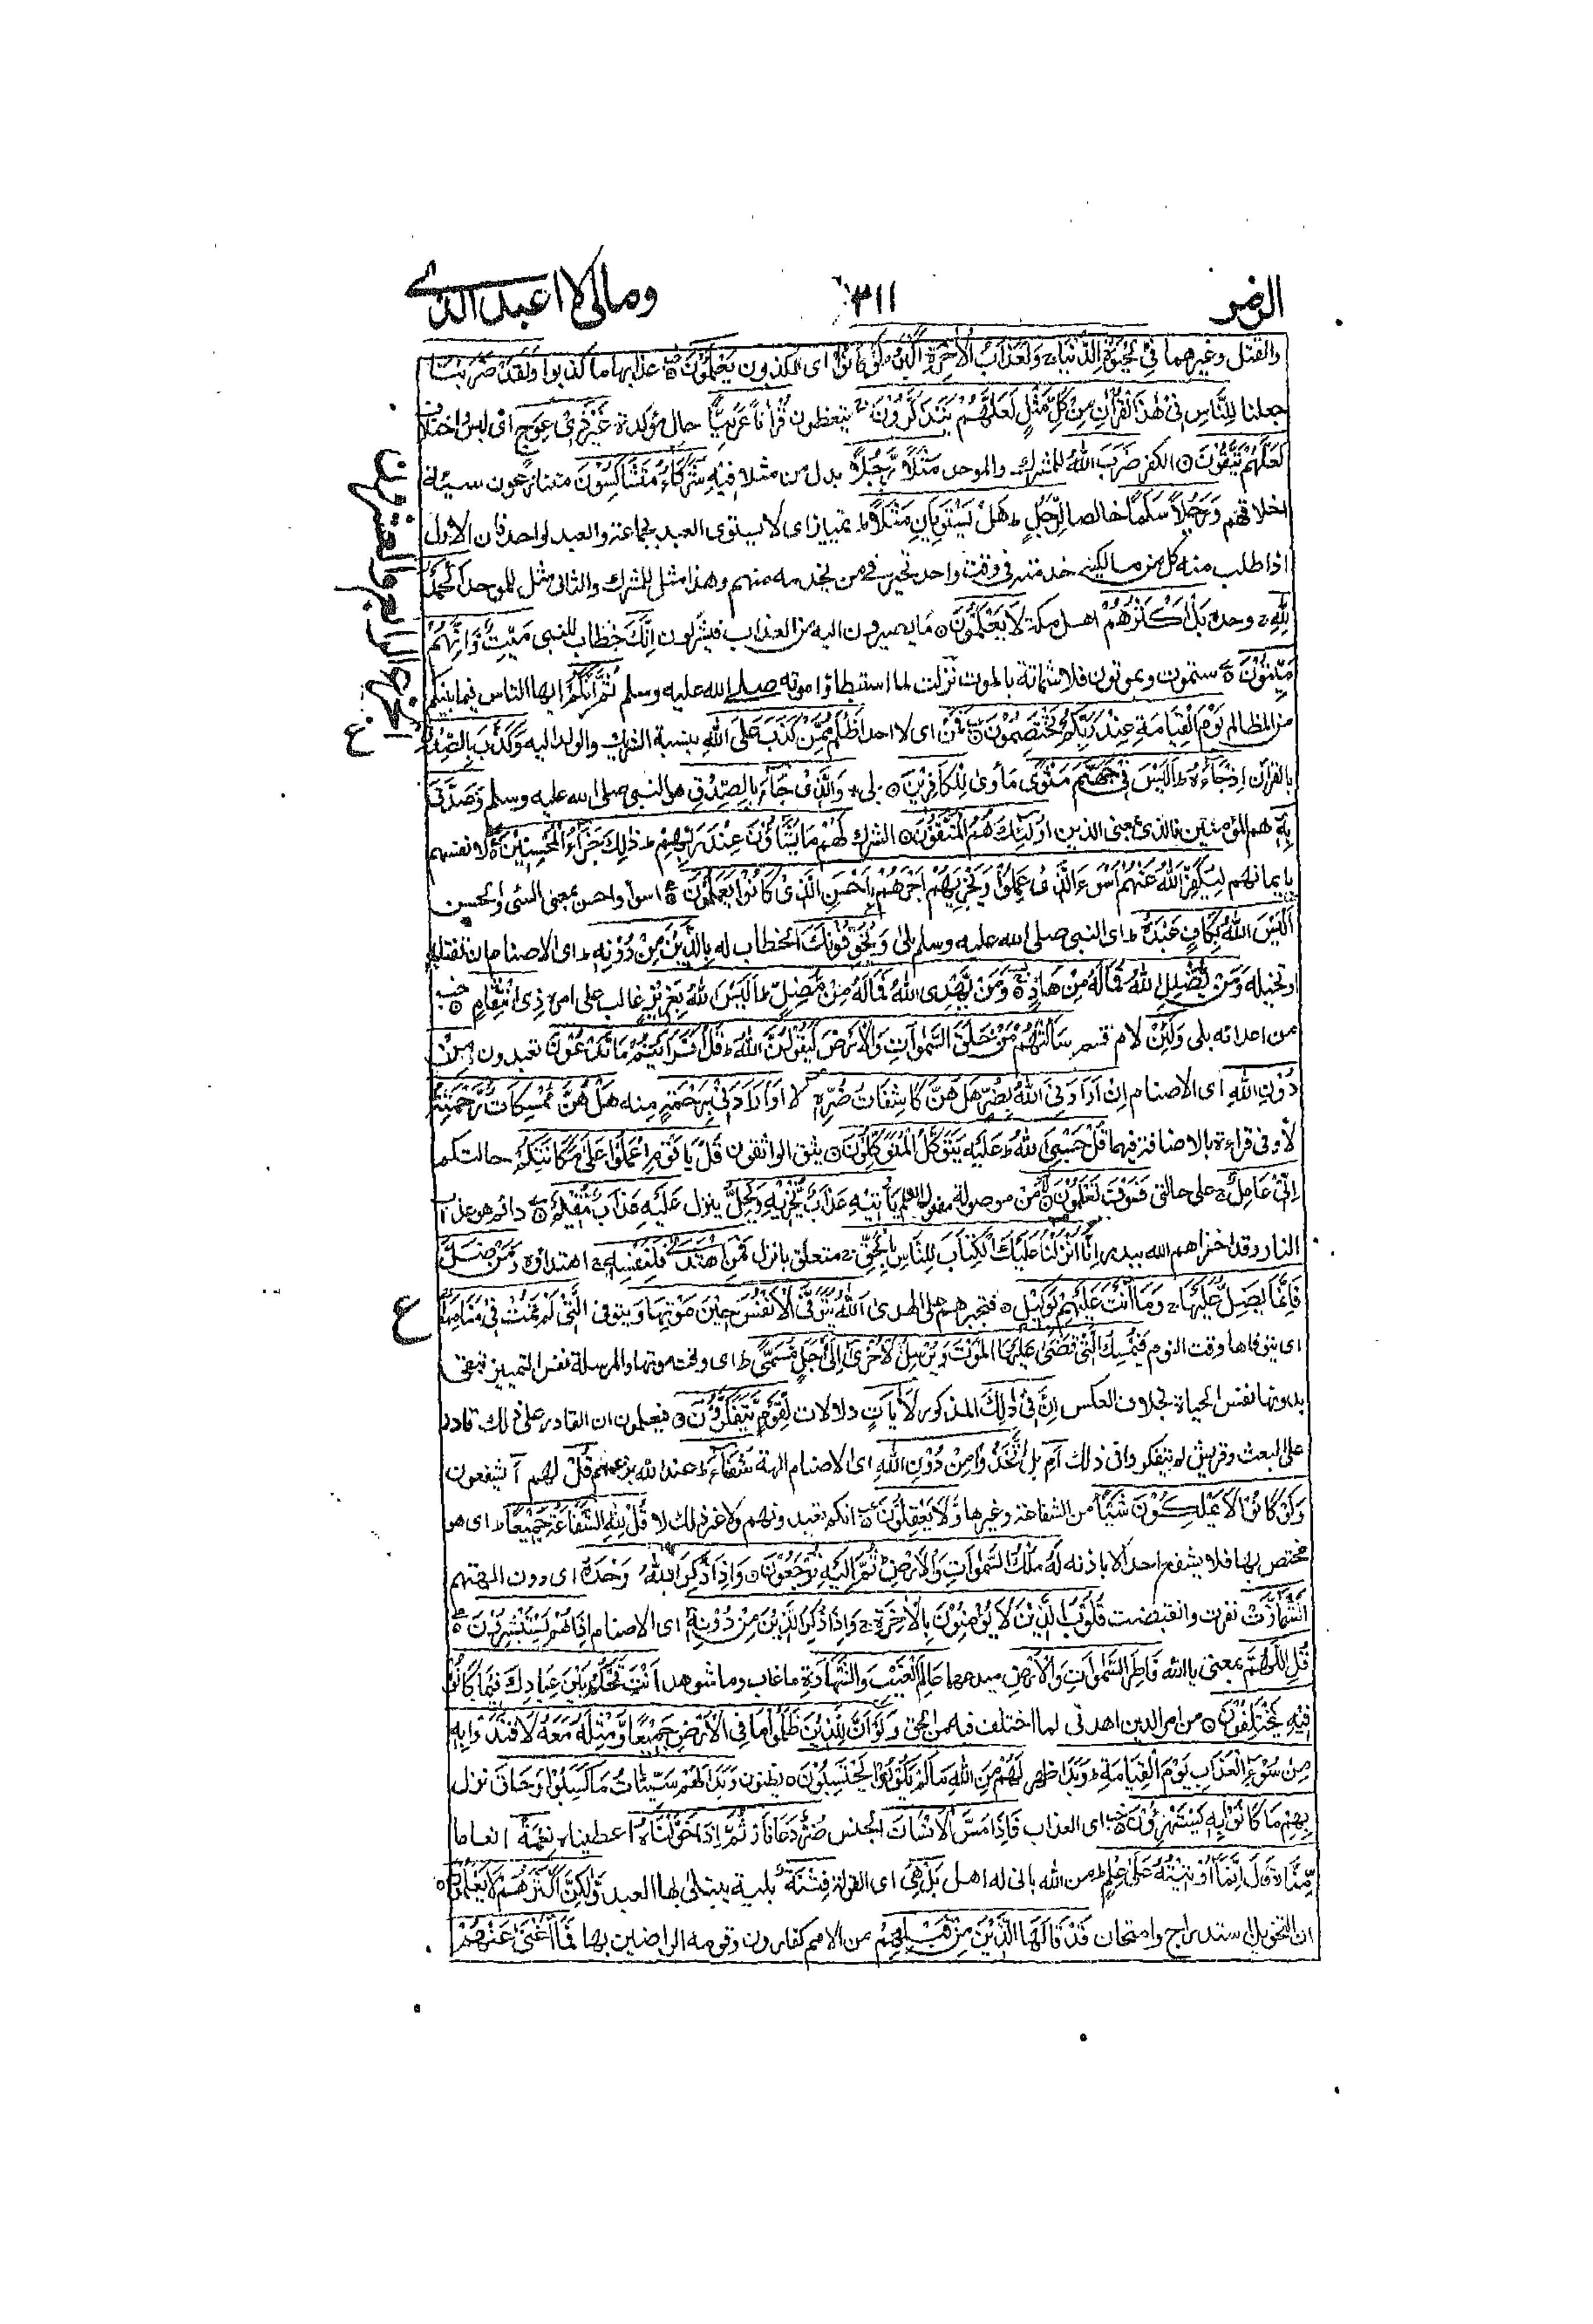 الزمر
٣١١
ومالى لا اعبد الذى
والقتل وغيرهما فِى الْحَيٰوةِ الدُّنْيَا ۚ وَلَعَذَابُ الْاٰخِرَةِ اَكْبَرُ ۘ لَوْ كَانُوْا اى المكذبون يَعْلَمُوْنَ ۝ عذابها ما كذبوا وَلَقَدْ ضَرَبْنَا
جعلنا لِلنَّاسِ فِىْ هٰذَا الْقُرْاٰنِ مِنْ كُلِّ مَثَلٍ لَعَلَّهُمْ يَتَذَكَّرُوْنَ ۚ يتعظون قُرْاٰنًا عَرَبِيًّا حال مؤكدة غَيْرَ ذِىْ عِوَجٍ اى لبس واختلاف
لَعَلَّهُمْ يَتَّقُوْنَ ۝ الكفر ضَرَبَ اللّٰهُ للمشرك والموحد مَثَلًا رَّجُلًا بدل من مثلا فِيْهِ شُرَكَاءُ مُتَشَاكِسُوْنَ متنازعون سيئة
اخلاقهم وَرَجُلًا سَلَمًا خالصا لِّرَجُلٍ ۭ هَلْ يَسْتَوِيَانِ مَثَلًا ۭ تمييز اى لا يستوى العبد لجماعة والعبد لواحد فان الاول
اذا طلب منه كل من مالكيه خدمته فى وقت واحد تحير فى من يخدمه منهم وهذا مثل للمشرك والثانى مثل للموحد اَلْحَمْدُ
لِلّٰهِ ۚ وحده بَلْ اَكْثَرُهُمْ اهل مكة لَا يَعْلَمُوْنَ ۝ ما يصيرون اليه من العذاب فيشركون اِنَّكَ خطاب للنبى مَيِّتٌ وَّاِنَّهُمْ
مَّيِّتُوْنَ ۝ ستموت ويموتون فلا شماتة بالموت نزلت لما استبطأوا موته صلى الله عليه وسلم ثُمَّ اِنَّكُمْ ايها الناس فيما بينكم
من المظالم يَوْمَ الْقِيَامَةِ عِنْدَ رَبِّكُمْ تَخْتَصِمُوْنَ ۝ فَمَنْ اى لا احد اَظْلَمُ مِمَّنْ كَذَبَ عَلَى اللّٰهِ بنسبة الشريك والولد اليه وَكَذَّبَ بِالصِّدْقِ
بالقرآن اِذْ جَاءَهٗ ۭ اَلَيْسَ فِىْ جَهَنَّمَ مَثْوًى مأوى لِّلْكَافِرِيْنَ ۝ بلى وَالَّذِىْ جَاءَ بِالصِّدْقِ هو النبى صلى الله عليه وسلم وَصَدَّقَ
بِهٖ هم المؤمنين فالذى بمعنى الذين اُولٰئِكَ هُمُ الْمُتَّقُوْنَ ۝ الشرك لَهُمْ مَّا يَشَاؤُنَ عِنْدَ رَبِّهِمْ ۭ ذٰلِكَ جَزَاءُ الْمُحْسِنِيْنَ ۝ لانفسهم
بايمانهم لِيُكَفِّرَ اللّٰهُ عَنْهُمْ اَسْوَءَ الَّذِىْ عَمِلُوْا وَيَجْزِيَهُمْ اَجْرَهُمْ بِاَحْسَنِ الَّذِىْ كَانُوْا يَعْمَلُوْنَ ۝ اسوأ واحسن بمعنى السىء والحسن
اَلَيْسَ اللّٰهُ بِكَافٍ عَبْدَهٗ ۭ اى النبى صلى الله عليه وسلم بلى وَيُخَوِّفُوْنَكَ الخطاب له بِالَّذِيْنَ مِنْ دُوْنِهٖ ۭ اى الاصنام ان تقتله
او تخبله وَمَنْ يُّضْلِلِ اللّٰهُ فَمَا لَهٗ مِنْ هَادٍ ۝ وَمَنْ يَّهْدِى اللّٰهُ فَمَا لَهٗ مِنْ مُّضِلٍّ ۭ اَلَيْسَ اللّٰهُ بِعَزِيْزٍ غالب على امره ذِى انْتِقَامٍ ۝
من اعدائه بلى وَلَئِنْ لام قسم سَاَلْتَهُمْ مَّنْ خَلَقَ السَّمٰوَاتِ وَالْاَرْضَ لَيَقُوْلُنَّ اللّٰهُ ۭ قُلْ اَفَرَاَيْتُمْ مَّا تَدْعُوْنَ تعبدون مِنْ
دُوْنِ اللّٰهِ اى الاصنام اِنْ اَرَادَنِىَ اللّٰهُ بِضُرٍّ هَلْ هُنَّ كَاشِفَاتُ ضُرِّهٖ لا اَوْ اَرَادَنِىْ بِرَحْمَةٍ منه هَلْ هُنَّ مُمْسِكَاتُ رَحْمَتِهٖ
لا وفى قراءة بالاضافة فيهما قُلْ حَسْبِىَ اللّٰهُ ۭ عَلَيْهِ يَتَوَكَّلُ الْمُتَوَكِّلُوْنَ ۝ يثق الواثقون قُلْ يَا قَوْمِ اعْمَلُوْا عَلٰى مَكَانَتِكُمْ حالتكم
اِنِّىْ عَامِلٌ ۚ على حالتى فَسَوْفَ تَعْلَمُوْنَ ۝ مَنْ موصولة مفعول العلم يَّاْتِيْهِ عَذَابٌ يُّخْزِيْهِ وَيَحِلُّ ينزل عَلَيْهِ عَذَابٌ مُّقِيْمٌ ۝ دائم هو عذاب
النار وقد اخزاهم الله ببدر اِنَّا اَنْزَلْنَا عَلَيْكَ الْكِتَابَ لِلنَّاسِ بِالْحَقِّ ۚ متعلق بانزل فَمَنِ اهْتَدٰى فَلِنَفْسِهٖ ۚ اهتداؤه وَمَنْ ضَلَّ
فَاِنَّمَا يَضِلُّ عَلَيْهَا ۚ وَمَا اَنْتَ عَلَيْهِمْ بِوَكِيْلٍ ۝ فتجبرهم على الهدى اَللّٰهُ يَتَوَفَّى الْاَنْفُسَ حِيْنَ مَوْتِهَا ويتوفى الَّتِىْ لَمْ تَمُتْ فِىْ مَنَامِهَا
اى يتوفاها وقت النوم فَيُمْسِكُ الَّتِىْ قَضٰى عَلَيْهَا الْمَوْتَ وَيُرْسِلُ الْاُخْرٰى اِلٰى اَجَلٍ مُّسَمًّى ۭ اى وقت موتها والمرسلة نفس التمييز تبقى
بدونها نفس الحياة بخلاف العكس اِنَّ فِىْ ذٰلِكَ المذكور لَاٰيَاتٍ دلالات لِّقَوْمٍ يَّتَفَكَّرُوْنَ ۝ فيعلمون ان القادر على ذلك قادر
على البعث وقريش لم يتفكروا فى ذلك اَمِ بل اتَّخَذُوْا مِنْ دُوْنِ اللّٰهِ اى الاصنام الهة شُفَعَاءَ ۭ عند الله بزعمهم قُلْ لهم أ يشفعون
وَلَوْ كَانُوْا لَا يَمْلِكُوْنَ شَيْئًا من الشفاعة وغيرها وَّلَا يَعْقِلُوْنَ ۝ انكم تعبدونهم ولا غير ذلك لا قُلْ لِّلّٰهِ الشَّفَاعَةُ جَمِيْعًا ۭ اى هو
مختص بها فلا يشفع احد الا باذنه لَهٗ مُلْكُ السَّمٰوَاتِ وَالْاَرْضِ ۭ ثُمَّ اِلَيْهِ تُرْجَعُوْنَ ۝ وَاِذَا ذُكِرَ اللّٰهُ وَحْدَهُ اى دون الهتهم
اشْمَاَزَّتْ نفرت وانقبضت قُلُوْبُ الَّذِيْنَ لَا يُؤْمِنُوْنَ بِالْاٰخِرَةِ ۚ وَاِذَا ذُكِرَ الَّذِيْنَ مِنْ دُوْنِهٖ اى الاصنام اِذَا هُمْ يَسْتَبْشِرُوْنَ ۝
قُلِ اللّٰهُمَّ بمعنى يا الله فَاطِرَ السَّمٰوَاتِ وَالْاَرْضِ مبدعهما عَالِمَ الْغَيْبِ وَالشَّهَادَةِ ما غاب وما شوهد اَنْتَ تَحْكُمُ بَيْنَ عِبَادِكَ فِيْمَا كَانُوْا
فِيْهِ يَخْتَلِفُوْنَ ۝ من امر الدين اهدنى لما اختلف فيه من الحق وَلَوْ اَنَّ لِلَّذِيْنَ ظَلَمُوْا مَا فِى الْاَرْضِ جَمِيْعًا وَّمِثْلَهٗ مَعَهٗ لَافْتَدَوْا بِهٖ
مِنْ سُوْءِ الْعَذَابِ يَوْمَ الْقِيَامَةِ ۭ وَبَدَا ظهر لَهُمْ مِّنَ اللّٰهِ مَا لَمْ يَكُوْنُوْا يَحْتَسِبُوْنَ ۝ يظنون وَبَدَا لَهُمْ سَيِّئَاتُ مَا كَسَبُوْا وَحَاقَ نزل
بِهِمْ مَّا كَانُوْا بِهٖ يَسْتَهْزِءُوْنَ ۝ اى العذاب فَاِذَا مَسَّ الْاِنْسَانَ الجنس ضُرٌّ دَعَانَا ز ثُمَّ اِذَا خَوَّلْنَاهُ اعطيناه نِعْمَةً انعاما
مِّنَّا ۙ قَالَ اِنَّمَا اُوْتِيْتُهٗ عَلٰى عِلْمٍ ۭ من الله بانى له اهل بَلْ هِىَ اى القولة فِتْنَةٌ بلية يبتلى بها العبد وَّلٰكِنَّ اَكْثَرَهُمْ لَا يَعْلَمُوْنَ ۝
ان التخويل استدراج وامتحان قَدْ قَالَهَا الَّذِيْنَ مِنْ قَبْلِهِمْ من الامم كقارون وقومه الراضين بها فَمَا اَغْنٰى عَنْهُمْ
ع
ع